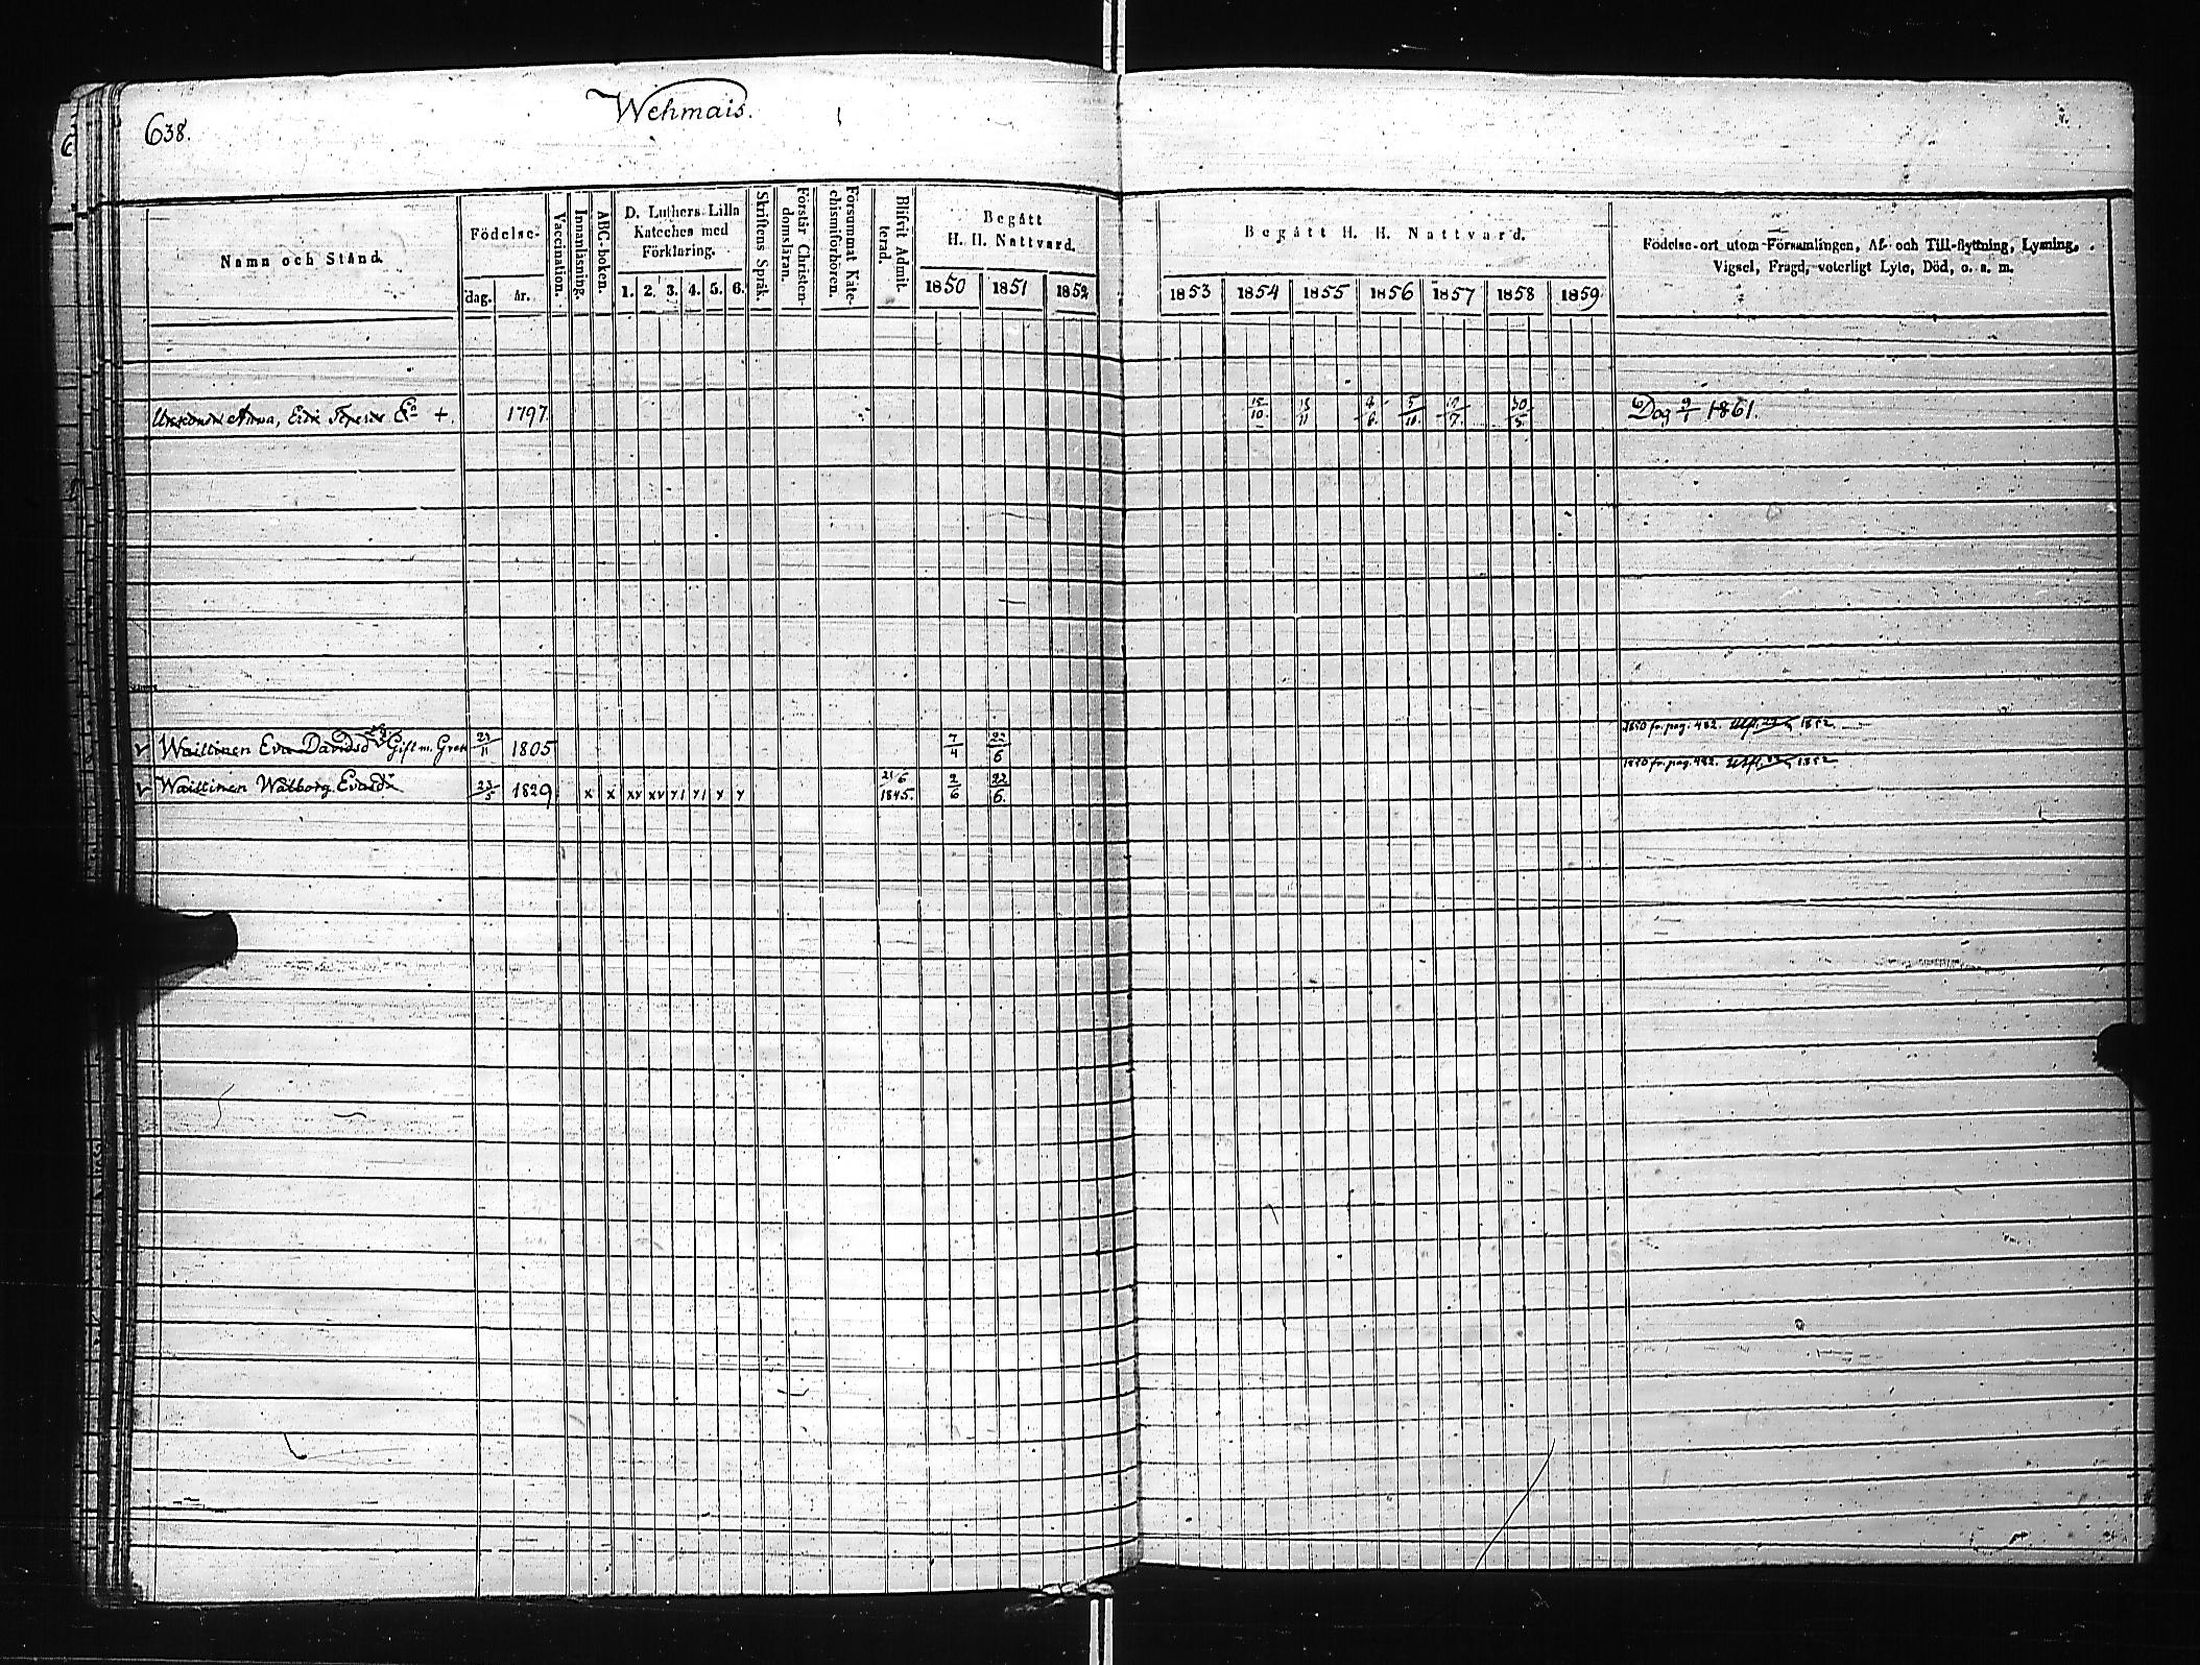 638.
Wehmais.
Namn och Stånd.
Födelse-
dag. år.
Vaccination.
Innanläsning.
ABC-boken.
D. Luthers Lilla
Kateches med
Förklaring.
1. 2. 3. 4. 5. 6.
Skriftens Språk.
Förstår Christen-
domsläran.
Försummat Kate-
chismiförhören.
Blifvit Admit-
terad.
Begått
H. H. Nattvard.
1850 1851 1852
Begått H. H. Nattvard.
1853 1854 1855 1856 1857 1858 1859
Födelse-ort utom Församlingen, Af- och Till-flyttning, Lysning,
Vigsel, Frägd, veterligt Lyte, Död, o. s. m.
Anna, +. 1797 30/5 Dog 1861.
Waittinen Eva Davidsd Gift m. 23/11 1805 7/4 22/6 1850 fr. pag. 482. 1852
Waittinen Walborg Evasdr 23/5 1829 x x xv xv 21/6 1845. 2/6 22/6. 1850 fr. pag. 482. 1852